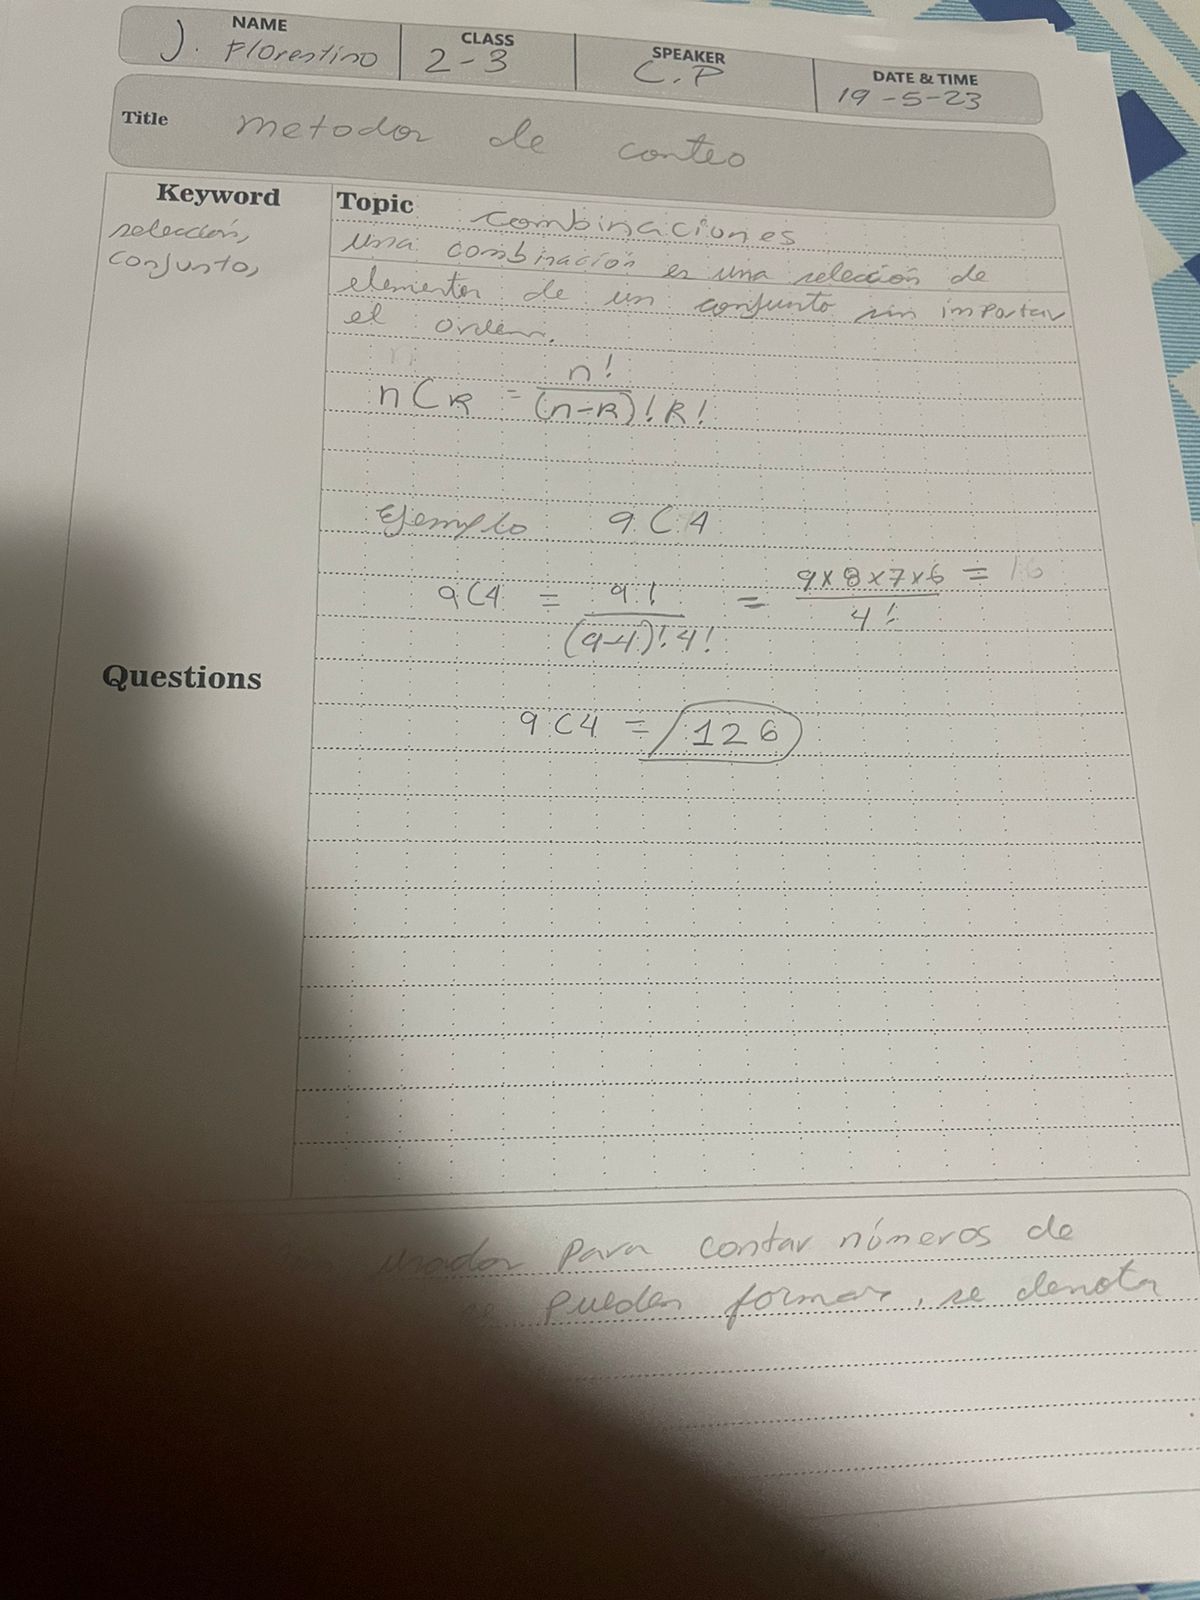 NAME CLASS SPEAKER DATE & TIME
J. Florentino 2-3 C.P 19-5-23
Title metodos de conteo
Keyword
selección,
conjunto,
Topic combinaciones
una combinación es una selección de
elementos de un conjunto sin importar
el orden.
nCR = n! / (n-R)! R!
Ejemplo 9C4
9C4 = 9! / (9-4)! 4! = 9x8x7x6 / 4! = 16
Questions
9C4 = 126
usados para contar números de
se pueden formar, se denota